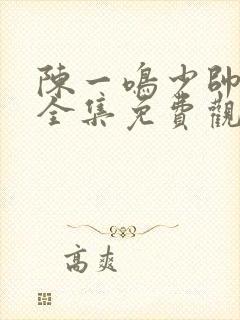 陳一鳴少帥
全集免費觀
高爽